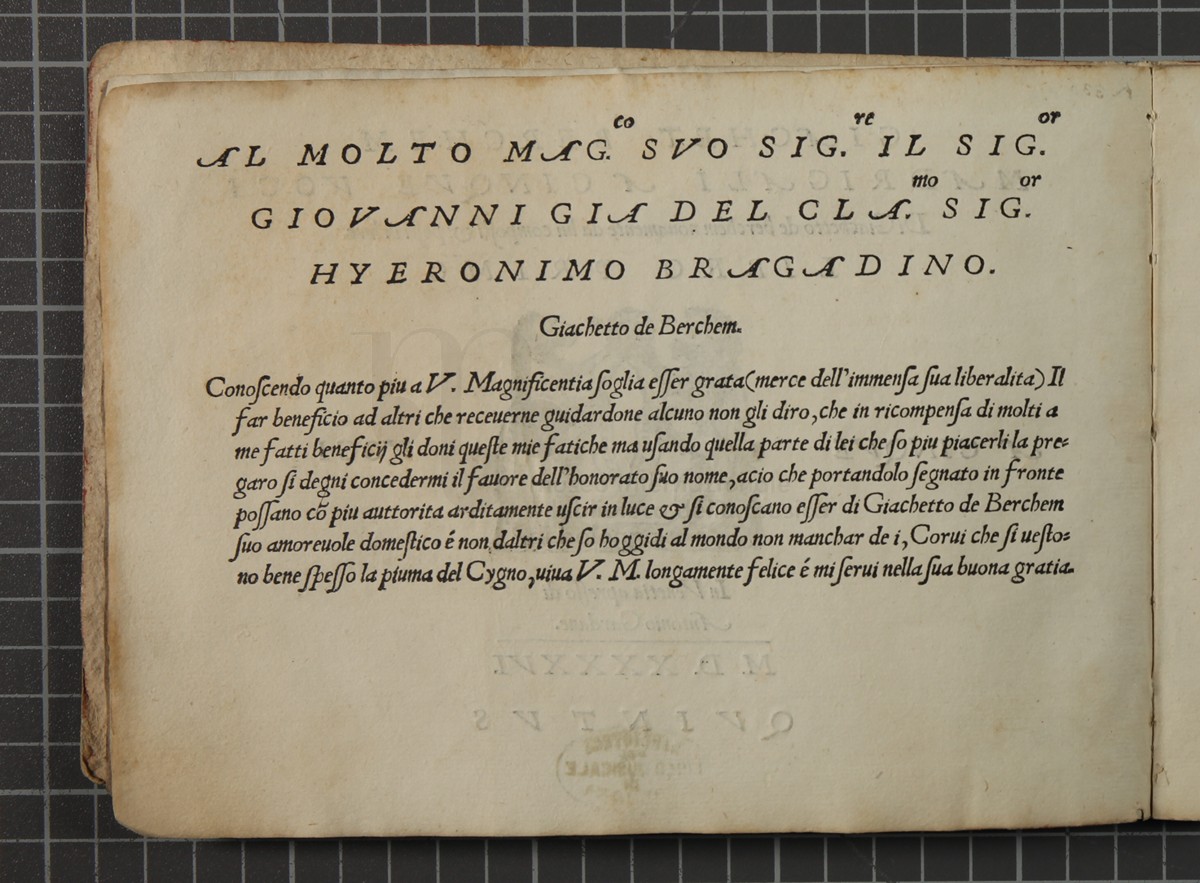 AL MOLTO MAG.co SVO SIG.re IL SIG.or
GIOVANNI GIA DEL CLA.mo SIG.or
HYERONIMO BRAGADINO.
Giachetto de Berchem.
Conoſcendo quanto piu a V. Magnificentia ſoglia eſſer grata (merce dell'immenſa ſua liberalita) Il
far beneficio ad altri che receuerne guidardone alcuno non gli diro, che in ricompenſa di molti a
me fatti beneficij gli doni queſte mie fatiche ma uſando quella parte di lei che ſo piu piacerli la pre=
garo ſi degni concedermi il fauore dell'honorato ſuo nome, acio che portandolo ſegnato in fronte
poſſano cõ piu auttorita arditamente uſcir in luce & ſi conoſcano eſſer di Giachetto de Berchem
ſuo amoreuole domeſtico é non daltri che ſo hoggidi al mondo non manchar de i, Corui che ſi ueſto=
no bene ſpeſſo la piuma del Cygno, uiua V. M. longamente felice é mi ſerui nella ſua buona gratia.
M. D. XXXXVI.
QVINTVS